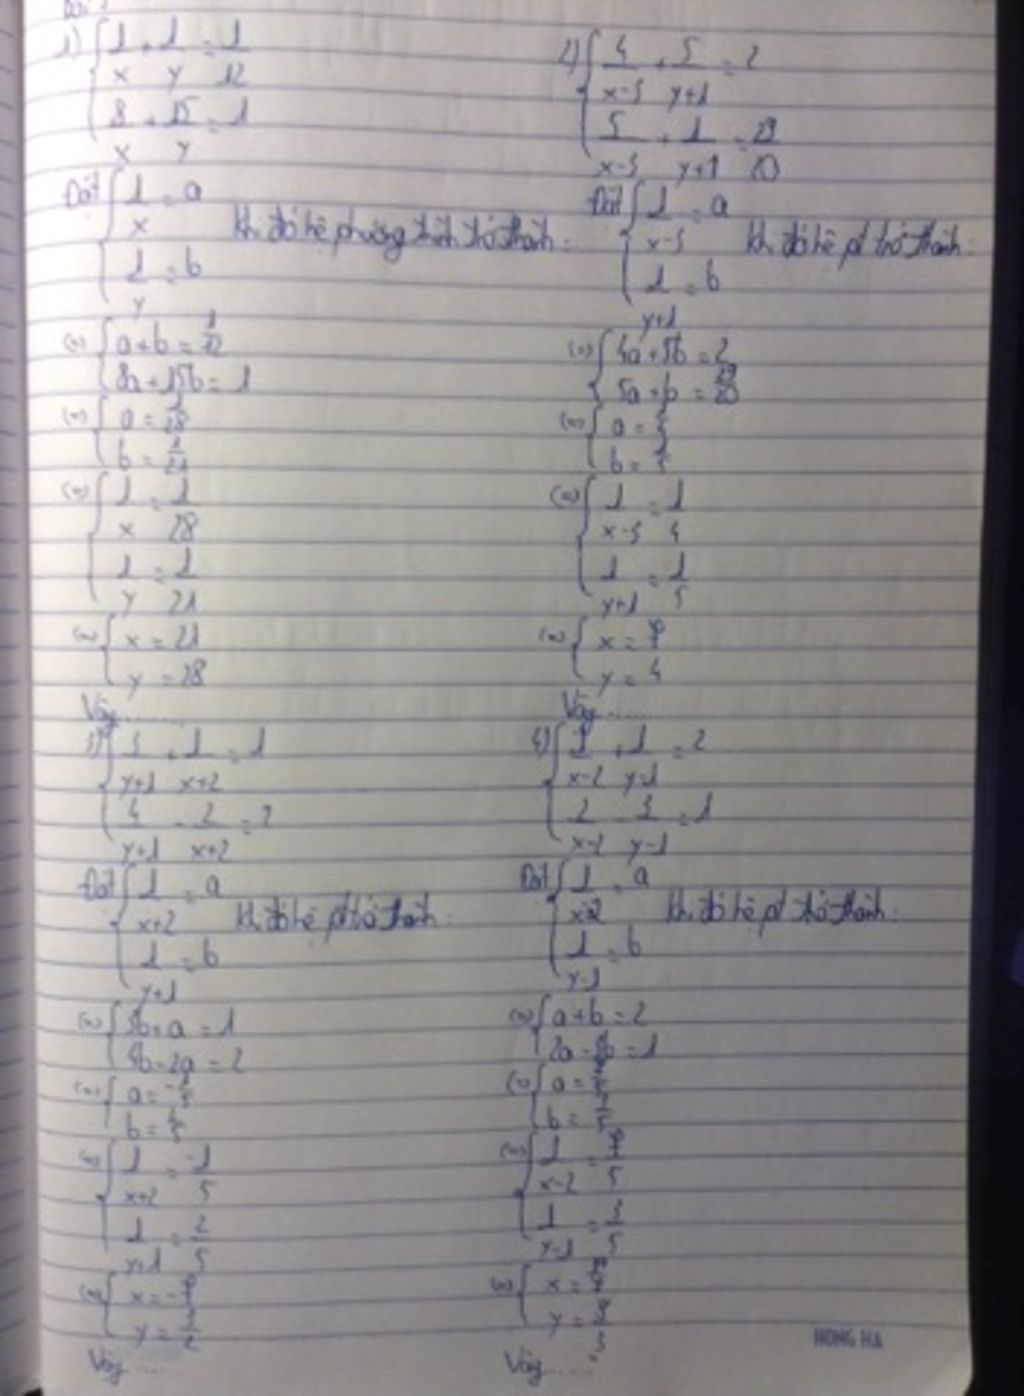 1) { 1/x + 1/y = 1/12
8/x + 15/y = 1
Đặt { 1/x = a
1/y = b
khi đó hệ phương trình trở thành:
(=) { a+b = 1/12
8a + 15b = 1
(=) { a = 1/28
b = 1/21
(=) { 1/x = 1/28
1/y = 1/21
(=) { x = 21
y = 28
Vậy ......
2) { 4/x-3 + 5/y+1 = 2
5/x-3 + 1/y+1 = 29/20
Đặt { 1/x-3 = a
1/y+1 = b
khi đó hệ pt trở thành:
(=) { 4a + 5b = 2
5a + b = 29/20
(=) { a = 1/4
b = 1/5
(=) { 1/x-3 = 1/4
1/y+1 = 1/5
(=) { x = 7
y = 4
Vậy .....
3) { 3/y+1 + 1/x+2 = 1
4/y+1 - 2/x+2 = 2
Đặt { 1/x+2 = a
1/y+1 = b
khi đó hệ pt trở thành:
(=) { 3b + a = 1
4b - 2a = 2
(=) { a = -1/5
b = 2/5
(=) { 1/x+2 = -1/5
1/y+1 = 2/5
(=) { x = -7
y = 3/2
Vậy .....
4) { 1/x-2 + 1/y-1 = 2
2/x-2 - 3/y-1 = 1
Đặt { 1/x-2 = a
1/y-1 = b
khi đó hệ pt trở thành:
(=) { a+b = 2
2a - 3b = 1
(=) { a = 7/5
b = 3/5
(=) { 1/x-2 = 7/5
1/y-1 = 3/5
(=) { x = 19/7
y = 8/3
Vậy .....
HONG HA